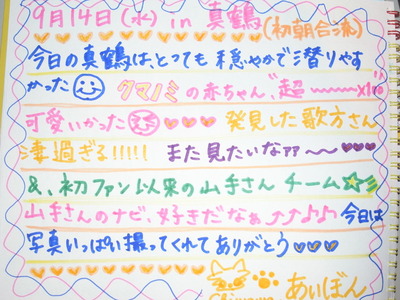 9月14日(水) in 真鶴
(初朝合流)
今日の真鶴は、とっても 穏やかで潜りやす
かった
クマノミの赤ちゃん、"超〜〜〜x100"
可愛いかった♡♡♡ 発見した歌方さん
凄過ぎる!!!!! また見たいなァァ〜〜♡♡♡
&、初ファン以来の山手さん チーム☆彡
山手さんのナビ、好きだなぁ↑↑♪♪ 今日は
写真いっぱい撮ってくれて ありがとう♡♡♡
あいぼん